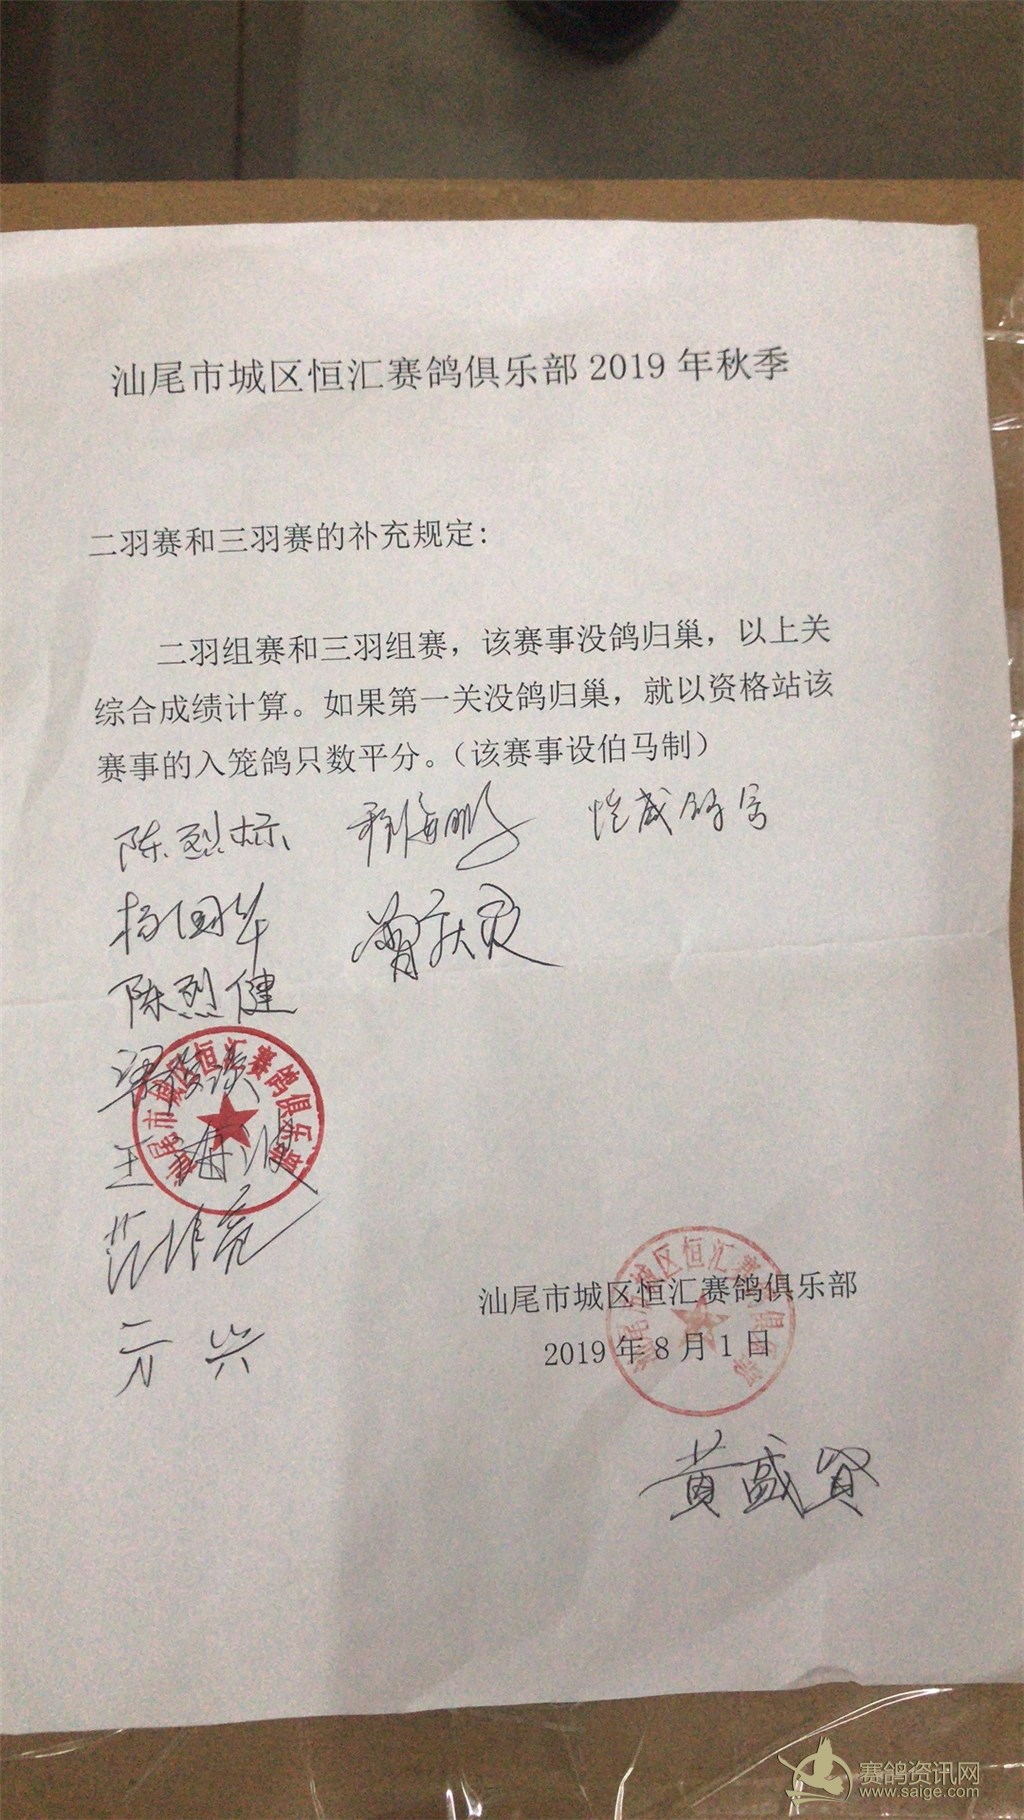 汕尾市城区恒汇赛鸽俱乐部 2019 年秋季
二羽赛和三羽赛的补充规定:
二羽组赛和三羽组赛，该赛事没鸽归巢，以上关
综合成绩计算。如果第一关没鸽归巢，就以资格站该
赛事的入笼鸽只数平分。（该赛事设伯马制）
陈烈标
杨国华
陈烈健
汕尾市城区恒汇赛鸽俱乐部
汕尾市城区恒汇赛鸽俱乐部
2019 年 8 月 1 日
汕尾市城区恒汇赛鸽俱乐部
黄盛贤
赛鸽资讯网
www.saige.com